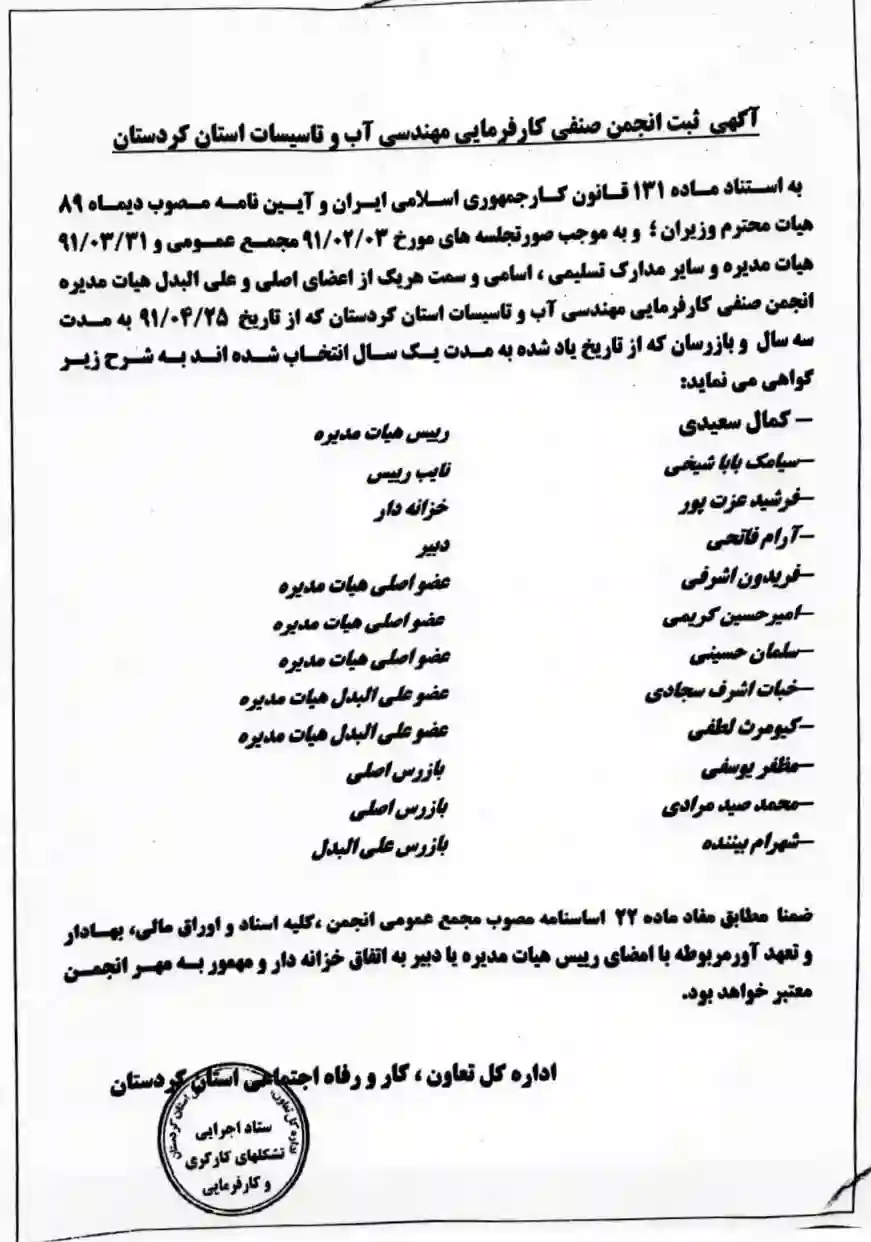 آگهی ثبت انجمن صنفی کارفرمایی مهندسی آب و تاسیسات استان کردستان
به استناد ماده ۱۳۱ قانون کارجمهوری اسلامی ایران و آیین نامه مصوب دیماه ۸۹
هیات محترم وزیران ؛ و به موجب صورتجلسه های مورخ ۹۱/۰۲/۰۳ مجمع عمومی و ۹۱/۰۳/۳۱
هیات مدیره و سایر مدارک تسلیمی ، اسامی و سمت هریک از اعضای اصلی و علی البدل هیات مدیره
انجمن صنفی کارفرمایی مهندسی آب و تاسیسات استان کردستان که از تاریخ ۹۱/۰۴/۲۵ به مدت
سه سال و بازرسان که از تاریخ یاد شده به مدت یک سال انتخاب شده اند به شرح زیر
گواهی می نماید:
– کمال سعیدی رییس هیات مدیره
–سیامک بابا شیخی نایب رییس
–فرشید عزت پور خزانه دار
–آرام فاتحی دبیر
–فریدون اشرفی عضو اصلی هیات مدیره
–امیرحسین کریمی عضو اصلی هیات مدیره
–سلمان حسینی عضو اصلی هیات مدیره
–خبات اشرف سجادی عضو علی البدل هیات مدیره
–کیومرث لطفی عضو علی البدل هیات مدیره
–مظفر یوسفی بازرس اصلی
–محمد صید مرادی بازرس اصلی
–شهرام بیننده بازرس علی البدل
ضمنا مطابق مفاد ماده ۲۲ اساسنامه مصوب مجمع عمومی انجمن ،کلیه اسناد و اوراق مالی، بهادار
و تعهد آورمربوطه با امضای رییس هیات مدیره یا دبیر به اتفاق خزانه دار و مهمور به مهر انجمن
معتبر خواهد بود.
اداره کل تعاون ، کار و رفاه اجتماعی استان کردستان
ستاد اجرایی
تشکلهای کارگری
و کارفرمایی